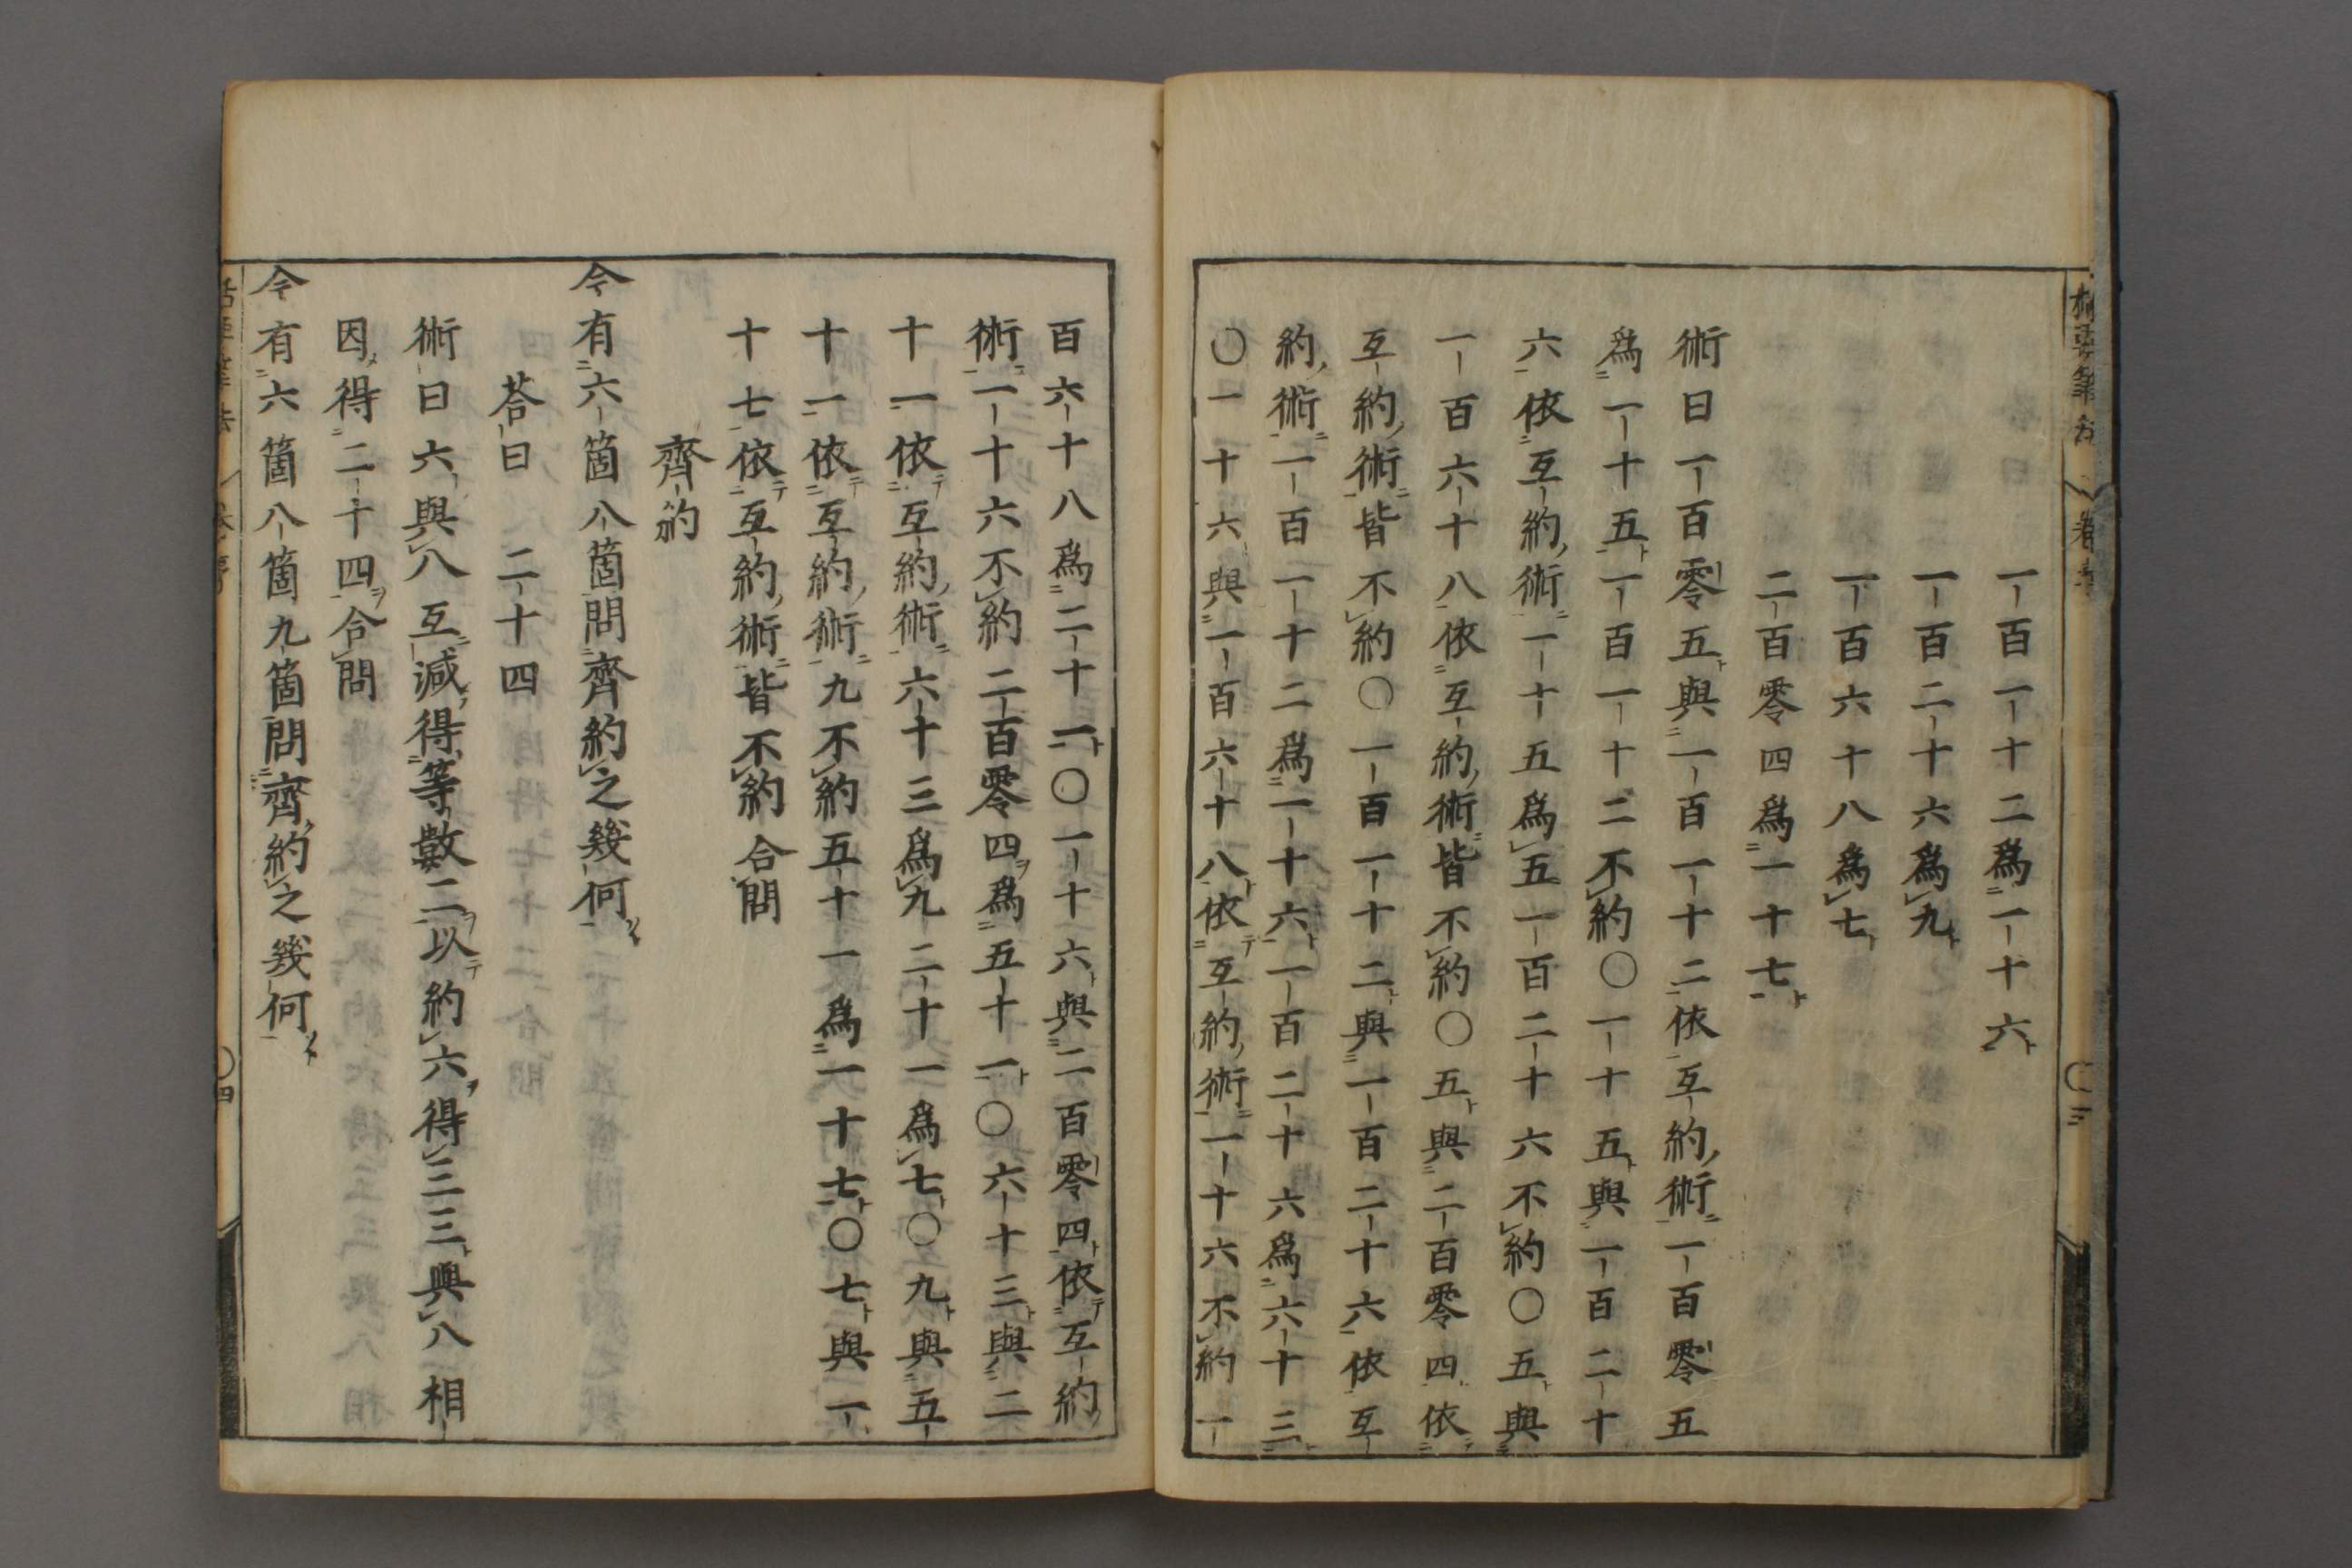 一百一十二爲一十六
一百二十六爲九
一百六十八爲七
二百零四爲一十七
術曰一百零五與一百一十二依互約術一百零五
爲一十五一百一十二不約〇一十五與一百二十
六依互約術一十五爲五一百二十六不約〇五與
一百六十八依互約術皆不約〇五與二百零四依
互約術皆不約〇一百一十二與一百二十六依互
約術一百一十二爲一十六一百二十六爲六十三
〇一十六與一百六十八依互約術一十六不約一
卷
〇三
百六十八爲二十一〇一十六與二百零四依互約
術一十六不約二百零四爲五十一〇六十三與二
十一依互約術六十三爲九二十一爲七〇九與五
十一依互約術九不約五十一爲一十七〇七與一
十七依互約術皆不約合問
齊約
今有六箇八箇問齊約之幾何
荅曰二十四
術曰六與八互減得等數二以約六得三三與八相
因得二十四合問
今有六箇八箇九箇問齊約之幾何
〇四